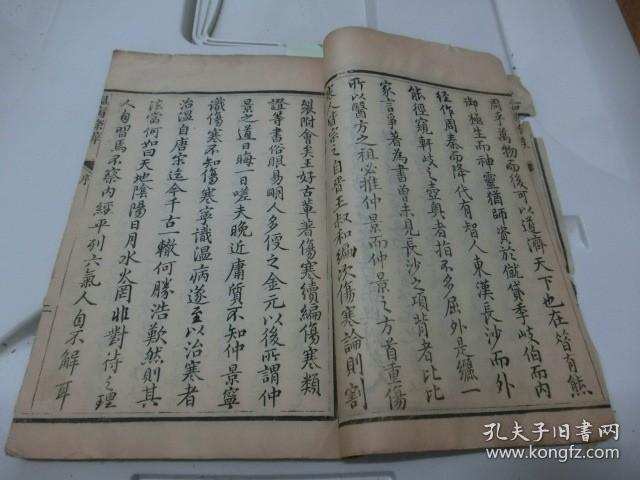 周乎萬物而後可以道濟天下也在昔有熊
御極生而神靈猶師資於僦貸季岐伯而內
經作周秦而降代有智人東漢長沙而外
能徑窺軒岐之壺奧者指不多屈外是纏一
家言爭著為書曾未見長沙之項背者比比
所以醫方之祖必推仲景而仲景之方首重傷
寒人皆宗之自晉王叔和編次傷寒論則割
製附會矣王好古輩著傷寒續編傷寒類
證等書俗眼易明人多便之金元以後所謂仲
景之道日晦一日嗟夫晚近庸質不知仲景寧
識傷寒不知傷寒寧識溫病遂至以治寒者
治溫自唐宋迄今千古一轍何勝浩歎然則其
法當何如曰天地陰陽日月水火罔非對待之理
人自習焉不察內經平列六氣人自不解耳
序
二
孔夫子旧書网
www.kongfz.com